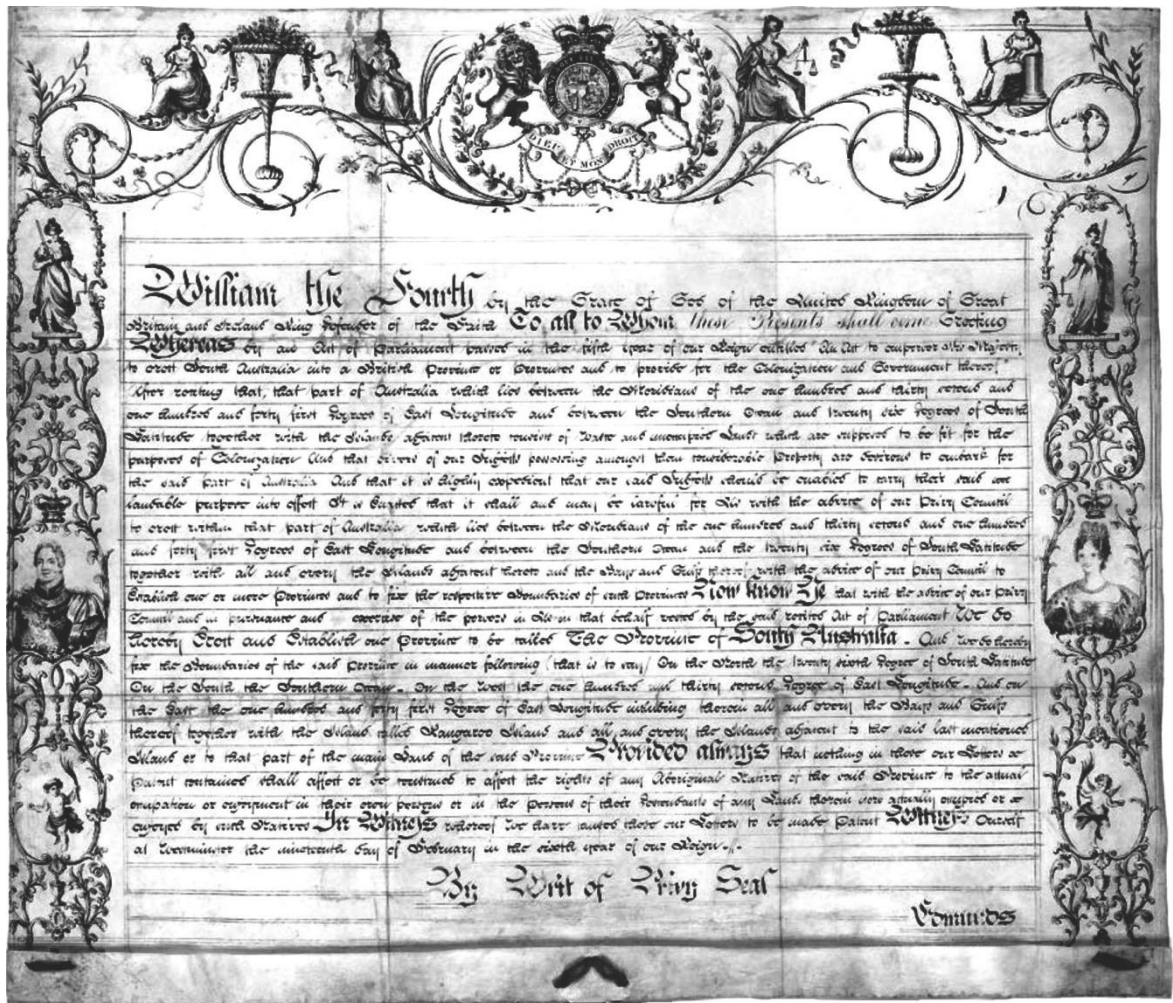 DIEU ET MON DROIT
William the Fourth by the Grace of God of the United Kingdom of Great
Britain and Ireland King Defender of the Faith To all to Whom these Presents shall come Greeting
Whereas by an Act of Parliament passed in the fifth year of our Reign entitled "An Act to empower His Majesty
to erect South Australia into a British Province or Provinces and to provide for the Colonization and Government thereof"
After reciting that, that part of Australia which lies between the Meridians of the one hundred and thirty second and
one hundred and forty first Degrees of East Longitude and between the Southern Ocean and twenty six Degrees of South
Latitude together with the Islands adjacent thereto consists of Waste and unoccupied Lands which are supposed to be fit for the
purposes of Colonization And that divers of our Subjects possessing amongst them considerable Property are desirous to embark for
the said part of Australia And that it is highly expedient that our said Subjects should be enabled to carry their said
laudable purpose into effect It is Enacted that it shall and may be lawful for Us with the advice of our Privy Council
to erect within that part of Australia which lies between the Meridians of the one hundred and thirty second and one hundred
and forty first Degrees of East Longitude and between the Southern Ocean and the twenty six Degrees of South Latitude
together with all and every the Islands adjacent thereto and the Bays and Gulfs thereof with the advice of our Privy Council to
Establish one or more Provinces and to fix the respective Boundaries of such Provinces Now Know Ye that with the advice of our Privy
Council and in pursuance and exercise of the powers in Us in that behalf vested by the said recited Act of Parliament We do
hereby Erect and Establish one Province to be called The Province of South Australia - And we do hereby
fix the Boundaries of the said Province in manner following (that is to say) On the North the twenty sixth Degree of South Latitude
On the South the Southern Ocean - On the West the one hundred and thirty second Degree of East Longitude - And on
the East the one hundred and forty first Degree of East Longitude including therein all and every the Bays and Gulfs
thereof together with the Island called Kangaroo Island and all and every the Islands adjacent to the said last mentioned
Island or to that part of the main Land of the said Province Provided always that nothing in these our Letters
Patent contained shall affect or be construed to affect the rights of any Aboriginal Natives of the said Province to the actual
occupation or enjoyment in their own persons or in the Persons of their Descendants of any Lands therein now actually occupied or
enjoyed by such Natives In Witness whereof We have caused these our Letters to be made Patent Witness Ourself
at Westminster the nineteenth day of February in the sixth year of our Reign
By Writ of Privy Seal
Edmunds